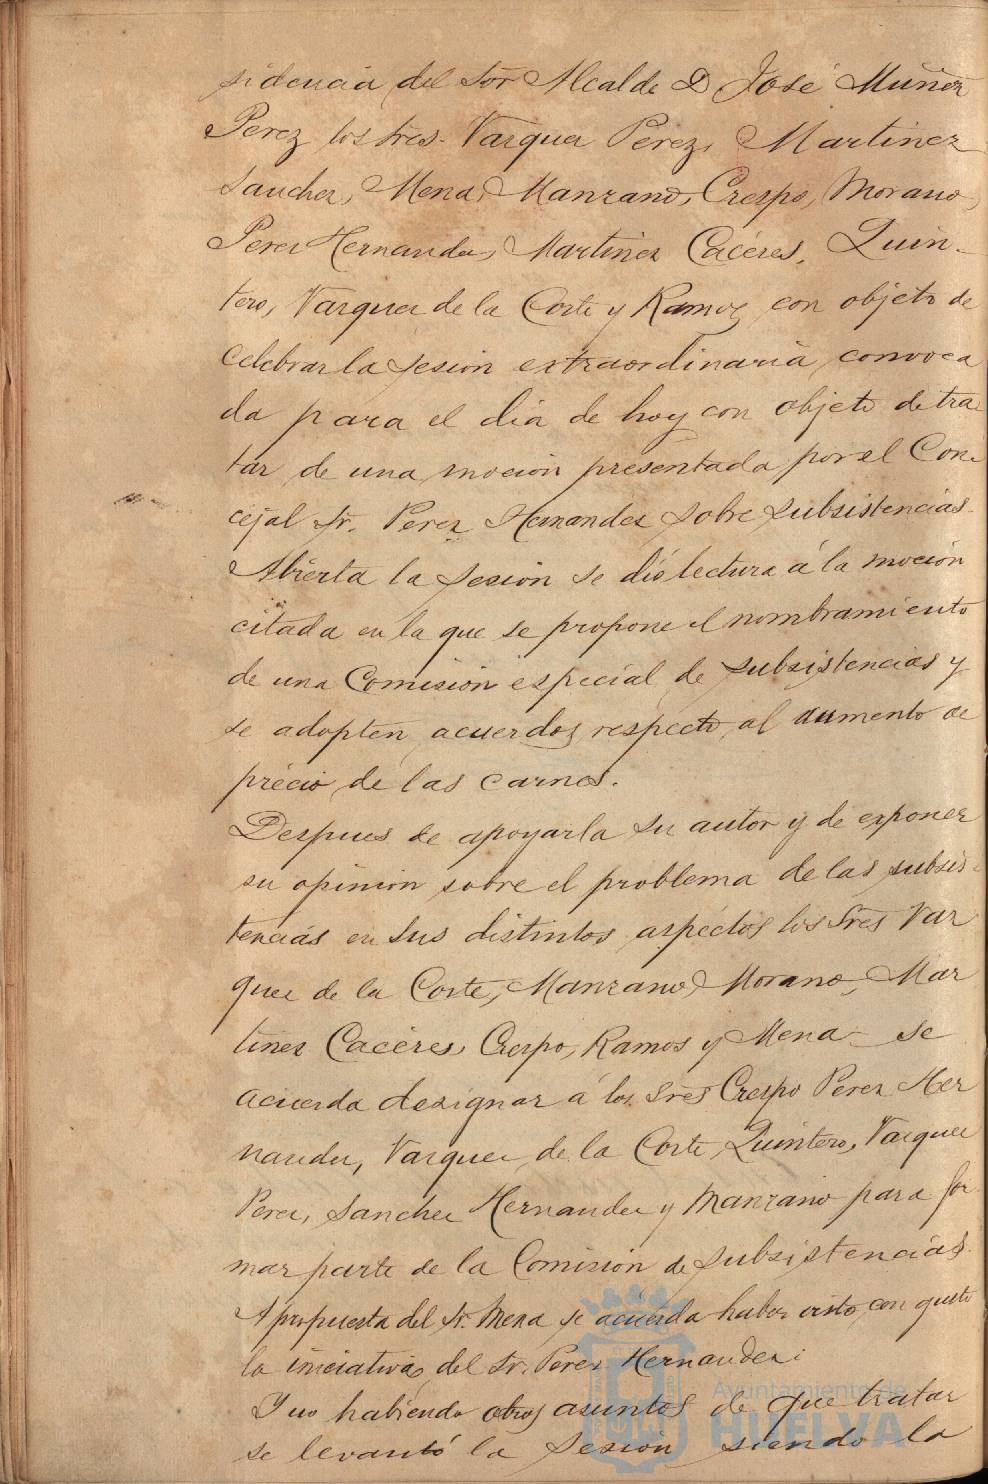 sidencia del Sor Alcalde D José Muñoz
Perez los Sres. Vazquez Perez, Martinez
Sanchez, Mena, Manzano, Crespo, Morano,
Perez Hernandez, Martinez Cáceres, Quin-
tero, Vazquez de la Corte y Ramos con objeto de
celebrar la sesion extraordinaria convoca
da para el dia de hoy con objeto de tra-
tar de una mocion presentada por el Con-
cejal Sr. Perez Hernandez sobre subsistencias.
Abierta la sesion se dió lectura á la mocion
citada en la que se propone el nombramiento
de una Comision especial de subsistencias y
se adopten acuerdos respecto al aumento de
precio de las carnes.
Despues de apoyarla su autor y de exponer
su opinion sobre el problema de las subsis-
tencias en sus distintos aspectos los Sres Vaz
quez de la Corte, Manzano, Morano, Mar
tinez Cáceres, Crespo, Ramos y Mena se
acuerda designar á los Sres Crespo Perez Her
nandez, Vazquez de la Corte Quintero, Vazquez
Perez, Sanchez Hernandez y Manzano para for
mar parte de la Comision de subsistencias.
A propuesta del Sr. Mena se acuerda haber visto con gusto
la iniciativa del Sr. Perez Hernandez.
Y no habiendo otros asuntos de que tratar
se levantó la sesion siendo la
Ayuntamiento de
HUELVA